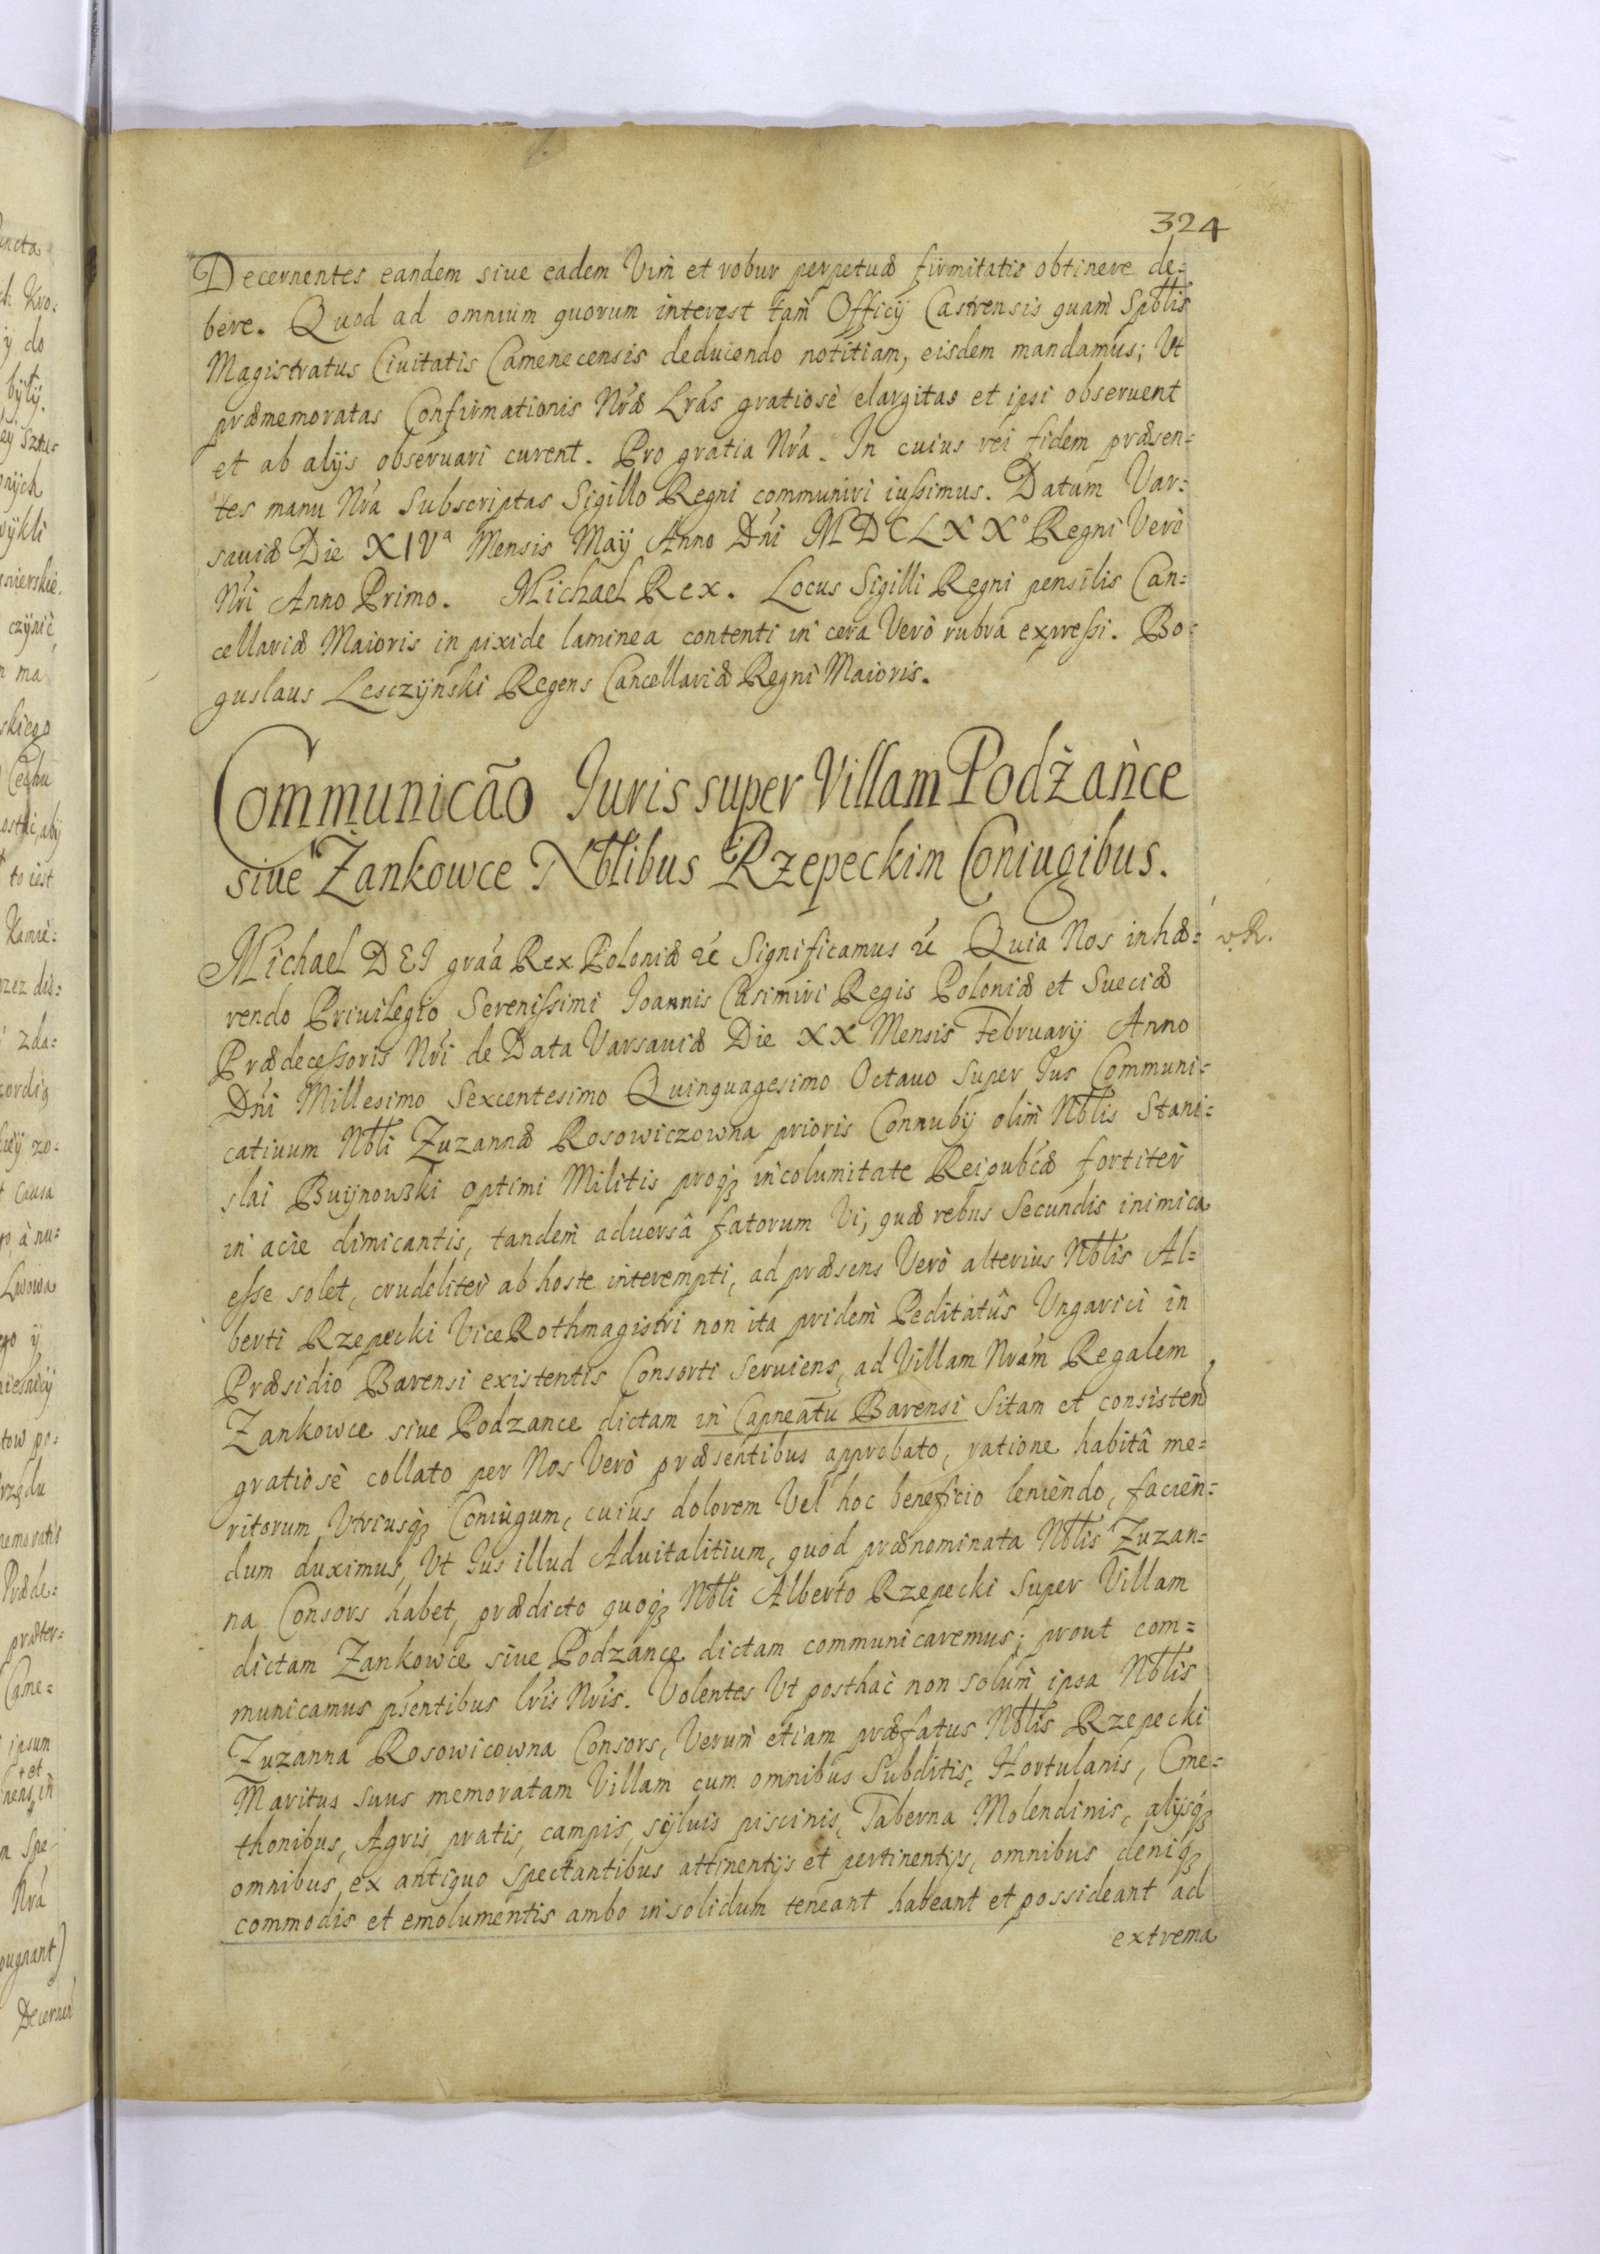 324
Decernentes eandem siue eadem Vim̀ et robur perpetuæ firmitatis obtinere de=
bere. Quod ad omnium quorum interest tam̀ Officÿ Castrensis quam̀ Spƀtlis
Magistratus Ciuitatis Camenecensis deducendo notitiam, eisdem mandamus; Vt
præmemoratas Confirmationis Nræ Lrás gratiosè elargitas et ipsi obseruent
et ab alijs obseruari curent. Pro gratia Nrá. In cuius rei fidem præsen=
tes manu Nrá Subscriptas Sigillo Regni communiri iussimus. Datam Var=
sauiæ Die XIVª Mensis Maij Anno Dñi MDCLXXº Regni Verò
Nri Anno Primo. Michael Rex. Locus Sigilli Regni pensilis Can=
cellariæ Maioris in pixide laminea contenti in cera Verò rubra expressi. Bo=
guslaus Lesczÿnski Regens Cancellariæ Regni Maioris.
Communicão Juris super Villam Podżańce
siue Żankowce Nobƚibus Rzepeckim Coniugibus.
Michael DEI gráa Rex Poloniæ &c Significamus &c Quia Nos inhæ=
v. R.
rendo Priuilegio Serenissimi Joannis Casimiri Regis Poloniæ et Sueciæ
Prædecessoris Nri de Data Varsauiæ Die XX Mensis Februarij Anno
Dñi Millesimo Sexcentesimo Quinquagesimo Octauo Super Jus Communi=
catiuum Nobƚi Zuzannæ Rosowiczowna prioris Connubij olim̀ Nobƚis Stani=
slai Buijnowski optimi Militis proqз incolumitate Reipubcæ fortiter
in acie dimicantis, tandem̀ aduersâ fatorum Vi, quæ rebus Secundis inimica
esse solet, crudeliter ab hoste interempti, ad præsens Verò alterius Nobƚis Al=
berti Rzepecki ViceRothmagistri non ita pridem̀ Peditatûs Vngarici in
Præsidio Barensi existentis Consorti Seruiens, ad Villam Nrám Regalem
Zankowce siue Podzance dictam in Capneatu Barensi Sitam et consisten
gratiosè collato per Nos Verò præsentibus approbato, ratione habitâ me=
ritorum Vtriusqз Coniugum, cuius dolorem Vel hoc beneficio leniendo, facien=
dum duximus, Vt Jus illud Aduitalitium, quod prænominata Nobƚis Zuzan=
na Consors habet, prædicto quoqз Nobƚi Alberto Rzepecki Super Villam
dictam Zankowce siue Podzance dictam communicaremus; prout com=
municamus pntibus lris Nris. Volentes Vt posthac non solum̀ ipsa Nobƚis
Zuzanna Rosowicowna Consors, Verum̀ etiam præfatus Nobƚis Rzepecki
Maritus Suus memoratam Villam cum omnibus Subditis, Hortulanis, Cme=
thonibus, Agris, pratis, campis, sÿluis piscinis, Taberna Molendinis, alijsqз
omnibus ex antiquo Spectantibus attinentijs et pertinentijs, omnibus deniqз
commodis et emolumentis ambo in solidum teneant habeant et possideant ad
extrema